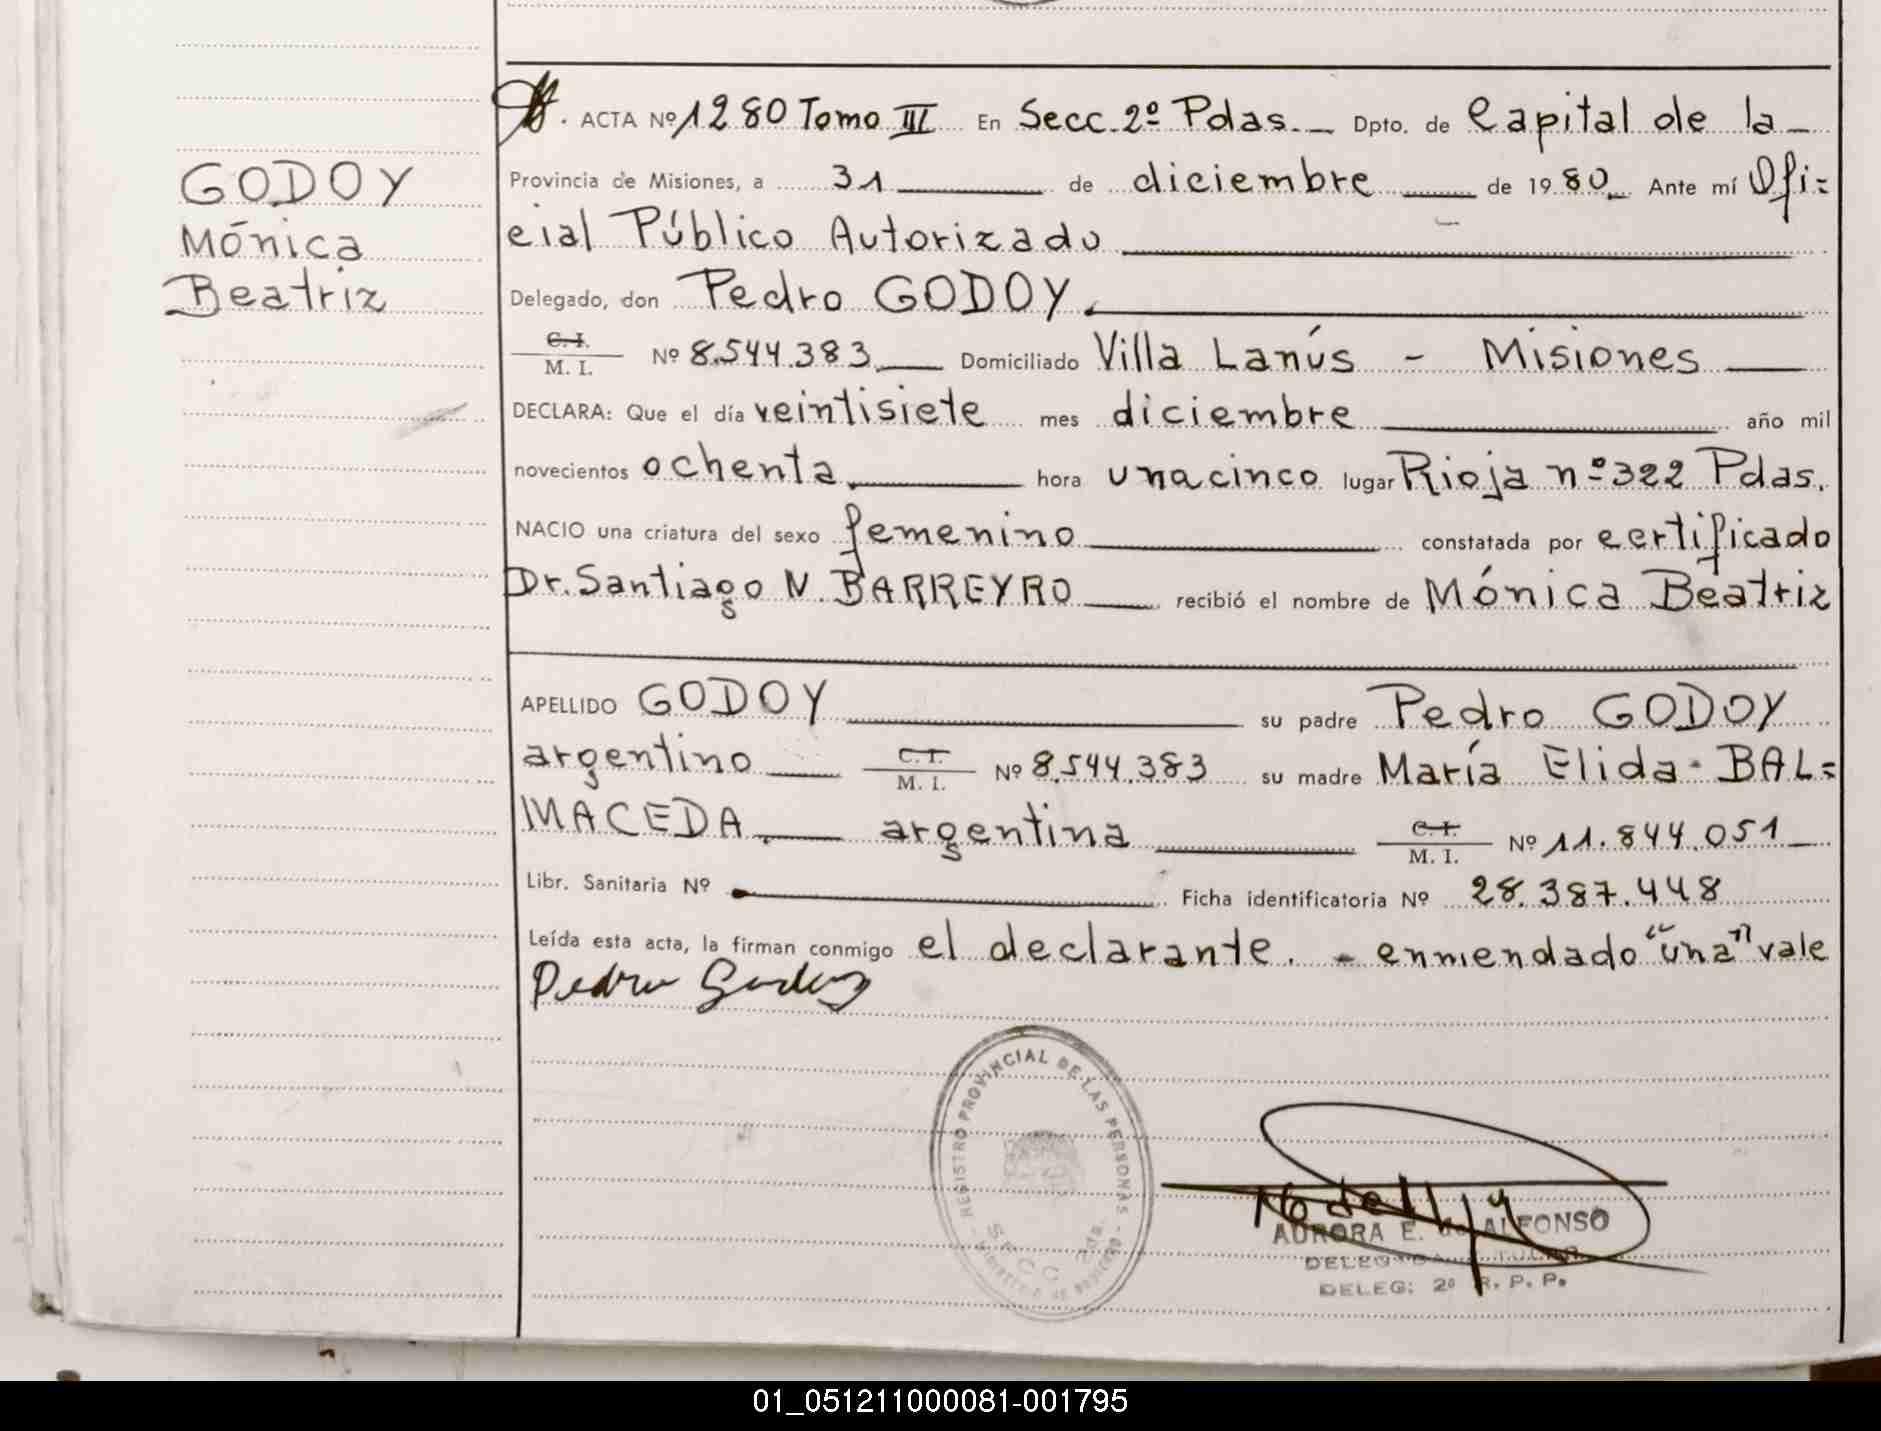 ACTA Nº 1280 Tomo III En Secc. 2º Pdas. Dpto. de Capital de la
GODOY
Mónica
Beatriz
Provincia de Misiones, a 31 de diciembre de 1980 Ante mí Ofi=
cial Público Autorizado
Delegado, don Pedro GODOY.
C.I.
M. I. Nº 8.544.383 Domiciliado Villa Lanús - Misiones
DECLARA: Que el día veintisiete mes diciembre año mil
novecientos ochenta hora una cinco lugar Rioja nº 322 Pdas.
NACIO una criatura del sexo femenino constatada por certificado
Dr. Santiago N. BARREYRO recibió el nombre de Mónica Beatriz
APELLIDO GODOY su padre Pedro GODOY
argentino C.I. M. I. Nº 8.544.383 su madre María Elida BAL=
MACEDA. argentina C.I. M. I. Nº 11.844.051
Libr. Sanitaria Nº Ficha identificatoria Nº 28.387.448
Leída esta acta, la firman conmigo el declarante. - enmendado "una" vale
Pedro Godoy
REGISTRO PROVINCIAL DE LAS PERSONAS
SECC. 2da.
AURORA E. de ALFONSO
DELEG: 2º R. P. P.
01_051211000081-001795